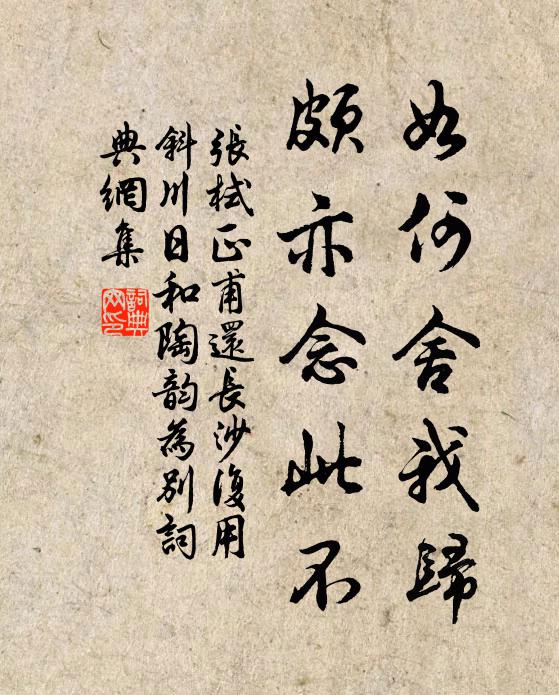 如何舍我歸
頗亦念此不
張栻正甫還長沙復用
斜川日和陶韵為別詞
典網集
詞典網印